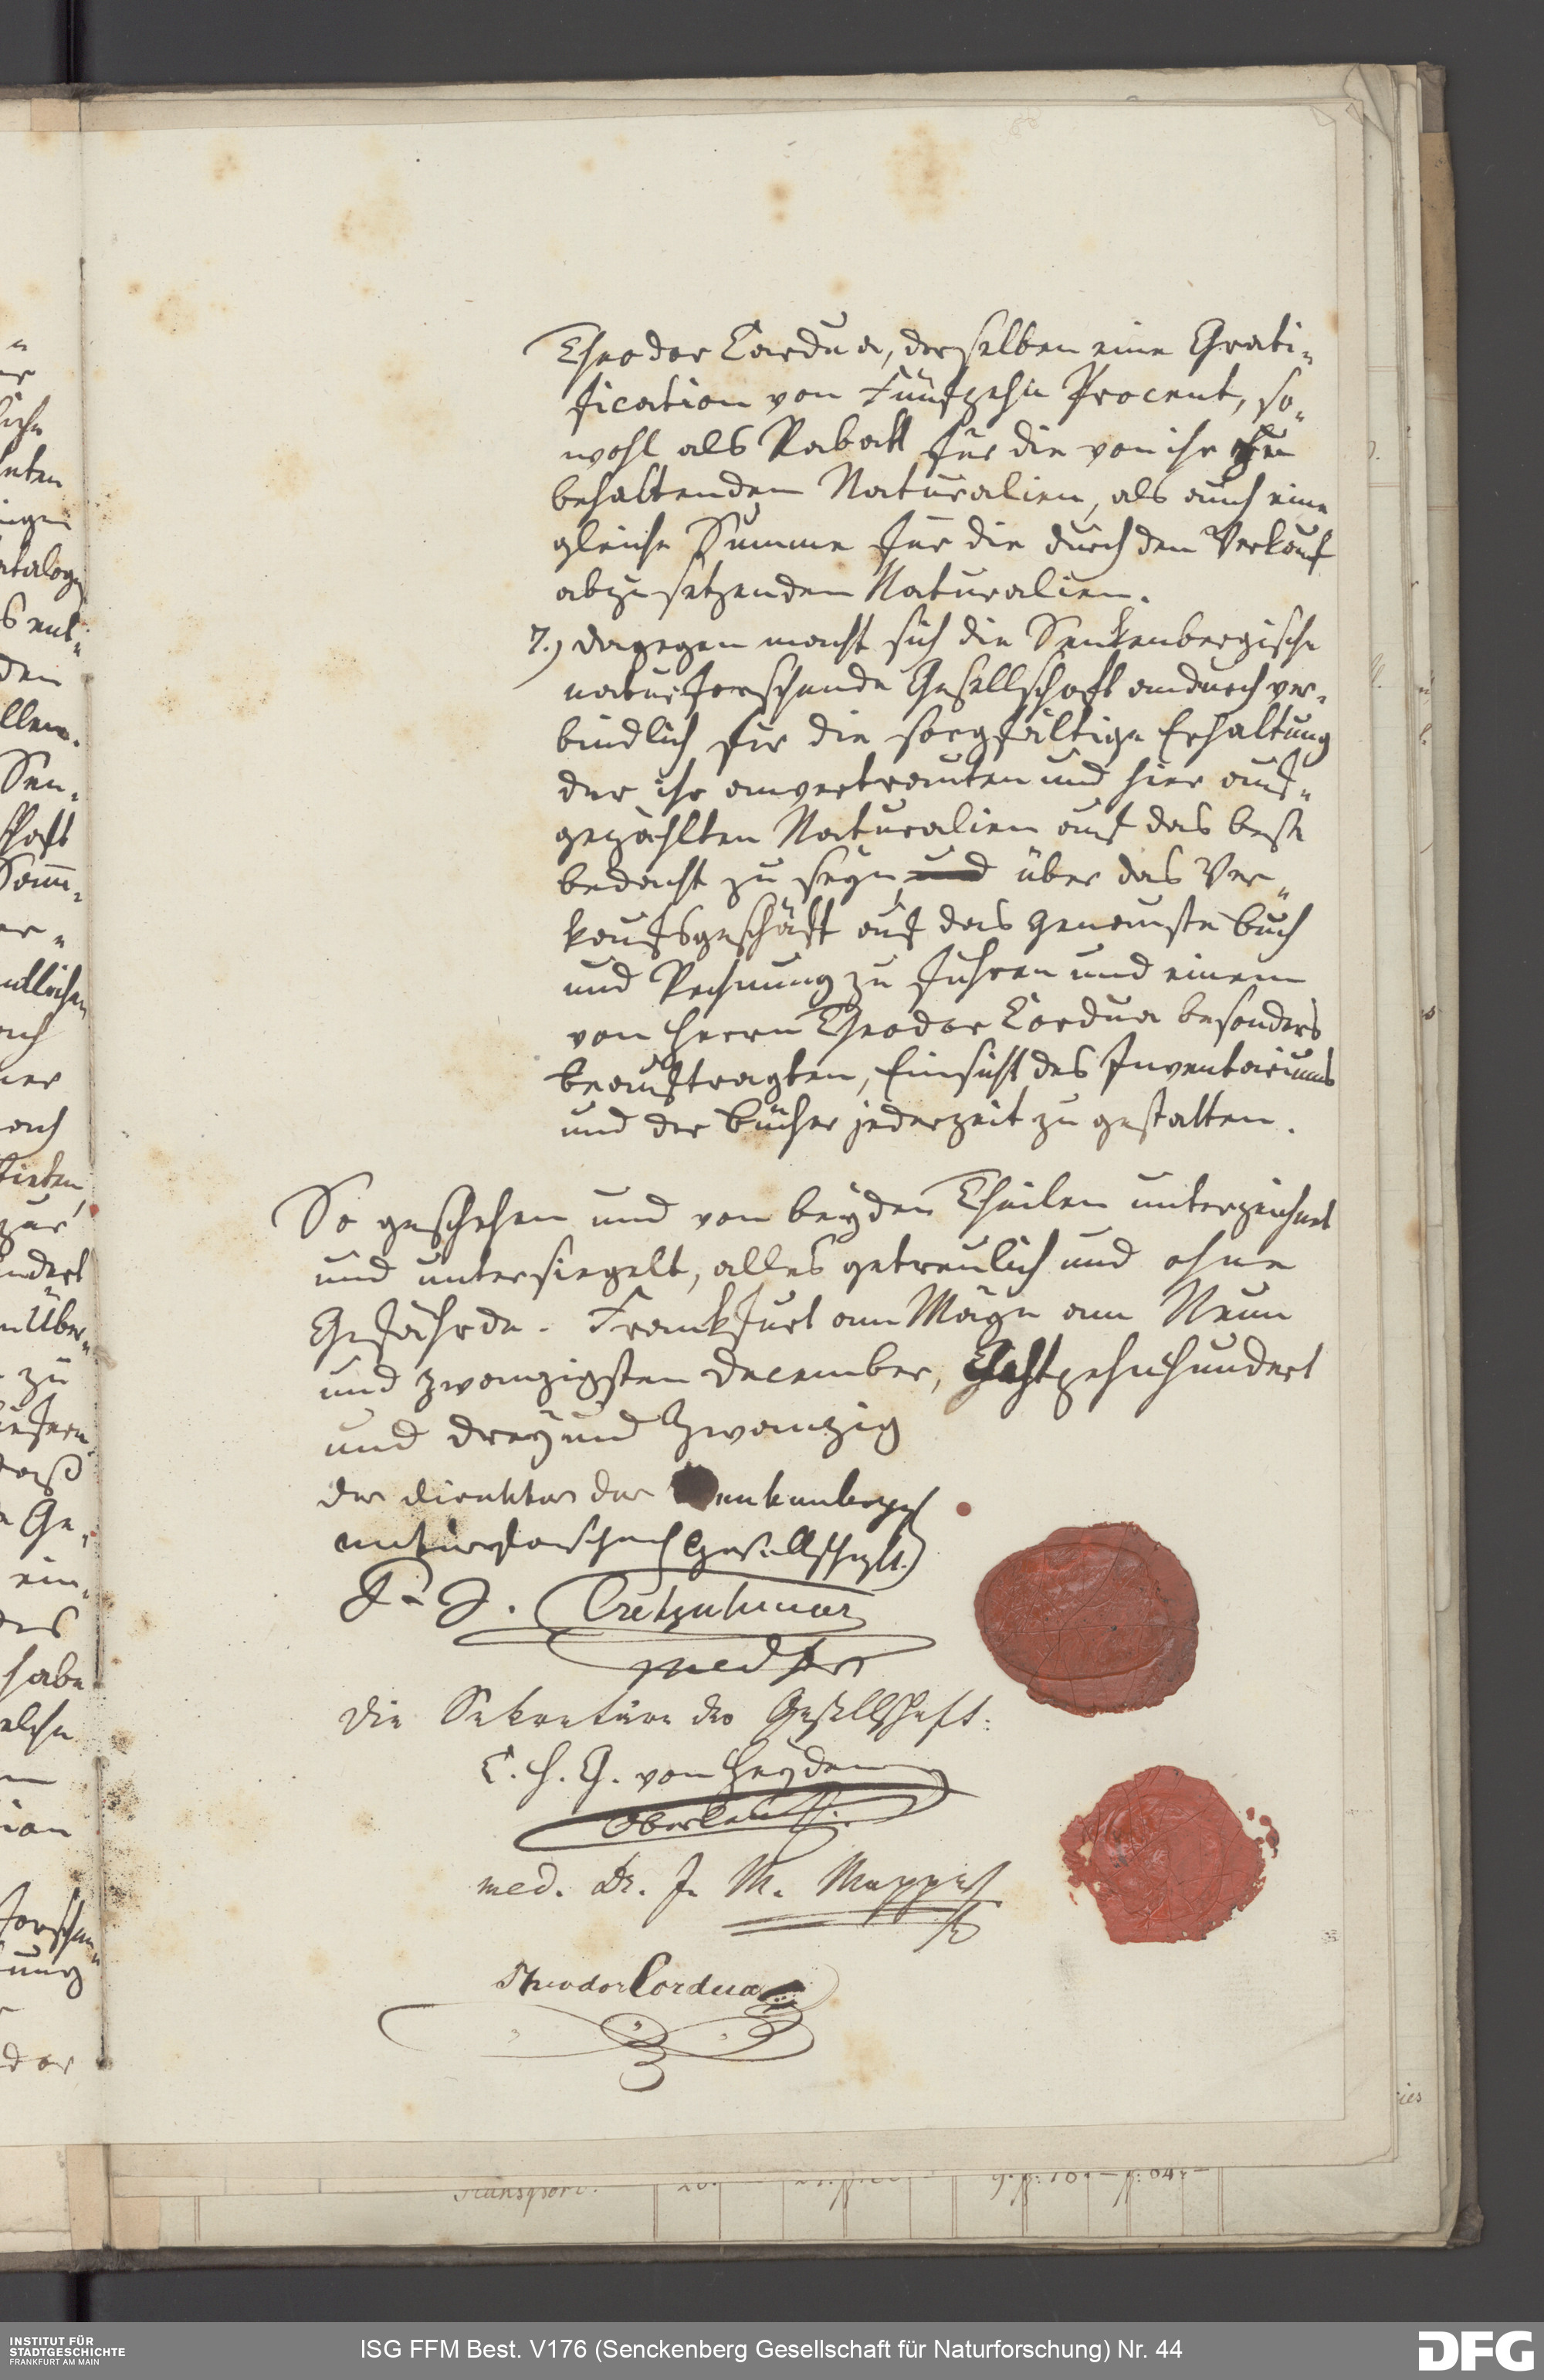 Theodor Cordua, derselben eine Grati-
fication von Fünfzehn Procent, so-
wohl als Rabatt für die von ihr zu
behaltenden Naturalien, als auch eine
gleiche Summe für die durch den Verkauf
abzusetzenden Naturalien.
7.) dagegen macht sich die Senkenbergische
naturforschende Gesellschaft andurch ver-
bindlich für die sorgfältige Erhaltung
der ihr anvertrauten und hier auf-
gezählten Naturalien auf das beste
bedacht zu seyn, über das Ver-
kaufsgeschäft auf das genauste Buch
und Rechnung zu fuhren und einem
von Herrn Theodor Cordua besonders
beauftragten, Einsicht des Inventariums
und der Bücher jederzeit zu gestatten.
So geschehen und von beyden Theilen unterzeichnet
und untersiegelt, alles getreulich und ohne
Gefährde. Frankfurt am Mayn am Neun
und zwanzigsten December, Achtzehnhundert
und drey und Zwanzig
der Direktor der Senkenberg
naturforschend Gesellschaft.
Cretzschmar
med Dr
Die Sekretäre der Gesellschaft:
C. H. G. von Heyden
Oberleut.
med. Dr. J. M. Mappes
Theodor Cordua
Transport.
INSTITUT FÜR
STADTGESCHICHTE
FRANKFURT AM MAIN
ISG FFM Best. V176 (Senckenberg Gesellschaft für Naturforschung) Nr. 44
DFG